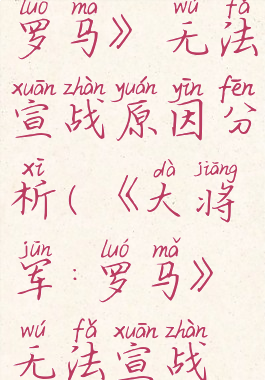 luó mǎ wú fǎ
罗马》 无法
xuān zhàn yuán yīn fēn
宣战原因分
xī dà jiāng
析(《大将
jūn luó mǎ
军:罗马》
wú fǎ xuān zhàn
无法宣战